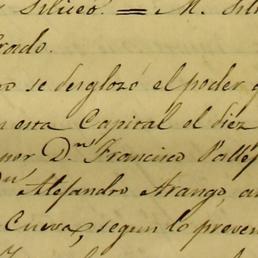 Siliceo. = M. Sili
rado.
se desglozó el poder
esta Capital el diez
nor D.n Francisco Palle
D.n Alejandro Arango, a
Cueva, segun lo preven